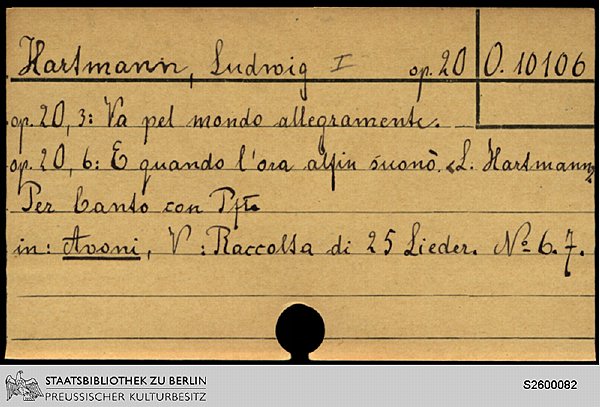 Hartmann, Ludwig I op. 20 O. 10106
op. 20, 3: Va pel mondo allegramente.
op. 20, 6: E quando l'ora alfin suonò. <L. Hartmann>
Per Canto con Pfte
in: Avoni, V : Raccolta di 25 Lieder. No 6. 7.
STAATSBIBLIOTHEK ZU BERLIN
PREUSSISCHER KULTURBESITZ
S2600082